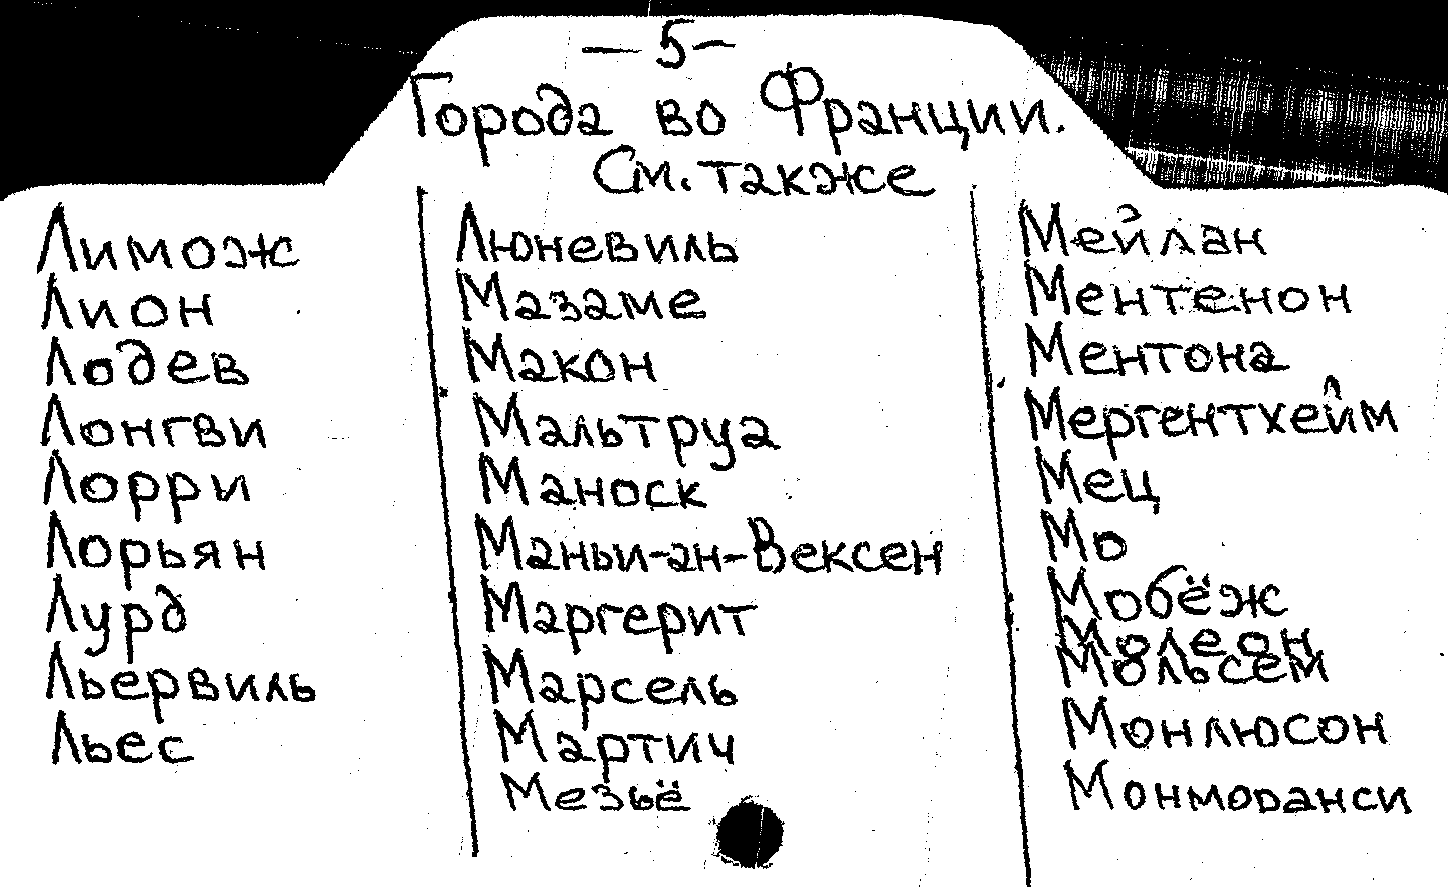 — 5 —
Города во Франции.
См. также
Лимож
Лион
Лодев
Лонгви
Лорри
Лорьян
Лурд
Льервиль
Льес
Люневиль
Мазаме
Макон
Мальтруа
Маноск
Маньи-ан-Вексен
Маргерит
Марсель
Мартич
Мезьё
Мейлан
Ментенон
Ментона
Мергентхейм
Мец
Мо
Мобёж
Молеон
Мольсем
Монлюсон
Монморанси